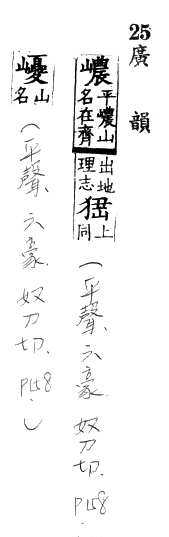 25
廣韻
峱平峱山名在齊出地理志㺜上同
(平聲.六豪.奴刀切.P158.
嶩山名
(平聲.六豪.奴刀切.P158.)